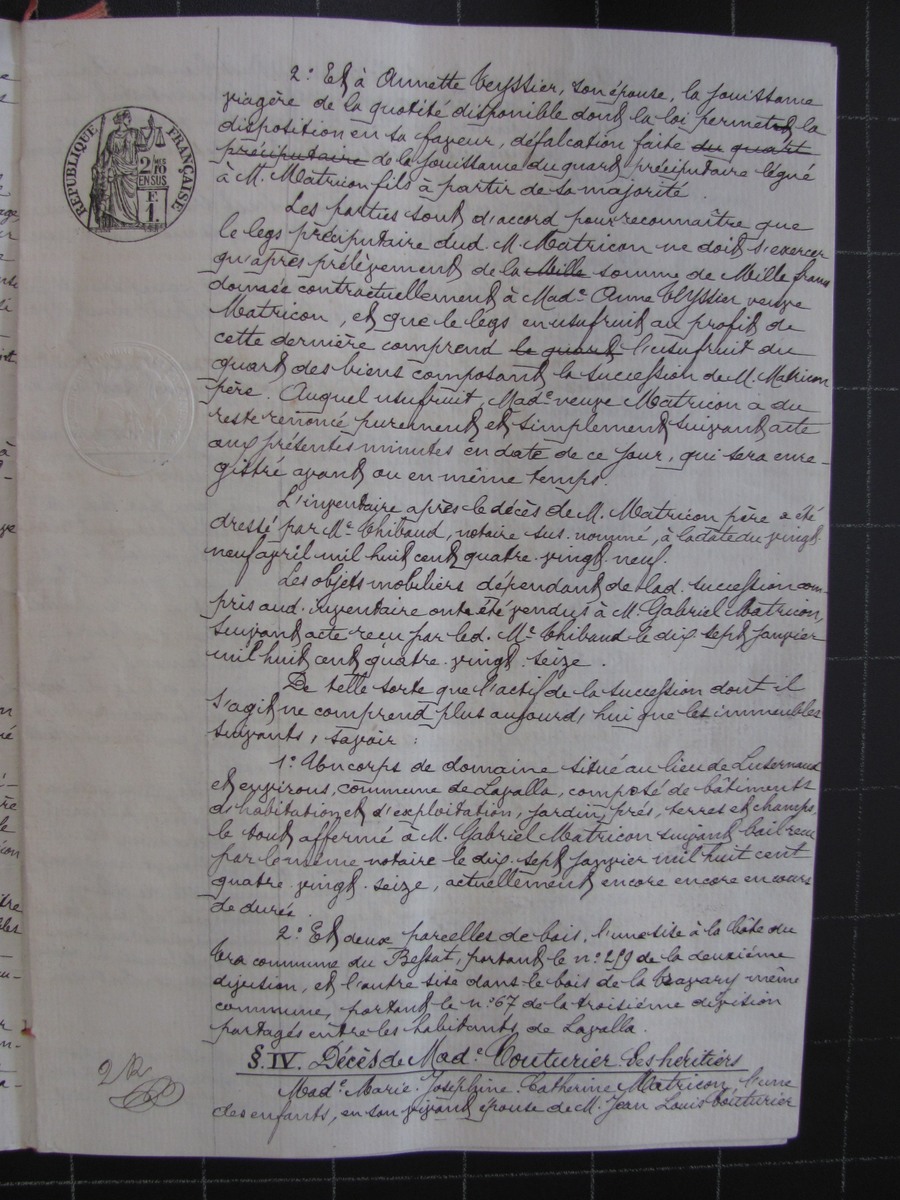 RÉPUBLIQUE FRANÇAISE
2/10 EN SUS
F. 1.
2° Et à Annette Veyssier, son épouse, la jouissance
viagère de la quotité disponible dont la loi permet la
disposition en sa faveur, défalcation faite du quart
préciputaire de la jouissance du quart préciputaire légué
à M. Matricon fils à partir de sa majorité.
Les parties sont d'accord pour reconnaître que
le legs préciputaire dud. M. Matricon ne doit s'exercer
qu'après prélèvement de la Mille somme de Mille francs
donnée contractuellement à Made Anne Veyssier veuve
Matricon, et que le legs en usufruit au profit de
cette dernière comprend le quart l'usufruit du
quart des biens composant la succession de M. Matricon
père. Auquel usufruit, Made veuve Matricon a du
reste renoncé purement et simplement suivant acte
aux présentes minutes en date de ce jour, qui sera enre-
gistré avant ou en même temps.
L'inventaire après le décès de M. Matricon père a été
dressé par Me Thibaud, notaire sus-nommé, à la date du vingt-
neuf avril mil huit cent quatre-vingt-neuf.
Les objets mobiliers dépendant de lad. succession com-
pris aud. inventaire ont été vendus à M. Gabriel Matricon,
suivant acte reçu par led. Me Thibaud le dix-sept janvier
mil huit cent quatre-vingt-seize.
De telle sorte que l'actif de la succession dont il
s'agit ne comprend plus aujourd'hui que les immeubles
suivants, savoir :
1° Un corps de domaine situé au lieu de Lusernaud
et environs, commune de Lavalla, composé de bâtiments
d'habitation et d'exploitation, jardin, prés, terres et champs,
le tout affermé à M. Gabriel Matricon suivant bail reçu
par le même notaire le dix-sept janvier mil huit cent
quatre-vingt-seize, actuellement encore encore en cours
de durée.
2° Et deux parcelles de bois, l'une sise à la Côte du
Cra commune du Bessat, portant le n° 259 de la deuxième
division, et l'autre sise dans le bois de la même
commune, portant le n° 67 de la troisième division
partagés entre les habitants de Lavalla.
§. IV. Décès de Made Couturier Ses héritiers
Made Marie-Joséphine-Catherine Matricon, l'une
des enfants, en son vivant épouse de M. Jean Louis Couturier